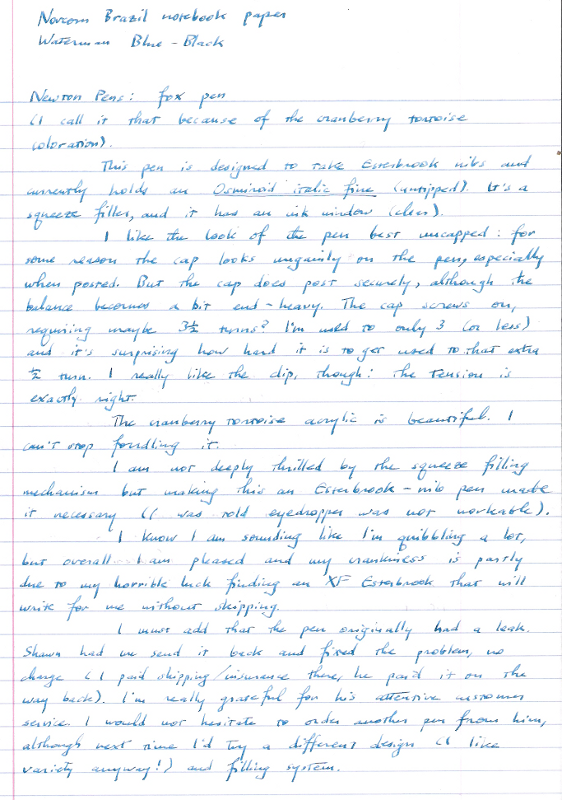 Norcom Brazil notebook paper
Waterman Blue-Black
Newton Pens: fox pen
(I call it that because of the cranberry tortoise
coloration).
This pen is designed to take Esterbrook nibs and
currently holds an Osmiroid italic fine (untipped). It's a
squeeze filler, and it has an ink window (clear).
I like the look of the pen best uncapped: for
some reason the cap looks ungainly on the pen, especially
when posted. But the cap does post securely, although the
balance becomes a bit end-heavy. The cap screws on,
requiring maybe 3½ turns? I'm used to only 3 (or less)
and it's surprising how hard it is to get used to that extra
½ turn. I really like the clip, though: the tension is
exactly right.
The cranberry tortoise acrylic is beautiful. I
can't stop fondling it.
I am not deeply thrilled by the squeeze filling
mechanism but making this an Esterbrook-nib pen made
it necessary (I was told eyedropper was not workable).
I know I am sounding like I'm quibbling a lot,
but overall I am pleased and my crankiness is partly
due to my horrible luck finding an XF Esterbrook that will
write for me without skipping.
I must add that the pen originally had a leak.
Shawn had me send it back and fixed the problem, no
charge (I paid shipping/insurance there, he paid it on the
way back). I'm really grateful for his attentive customer
service. I would not hesitate to order another pen from him,
although next time I'd try a different design (I like
variety anyway!) and filling system.